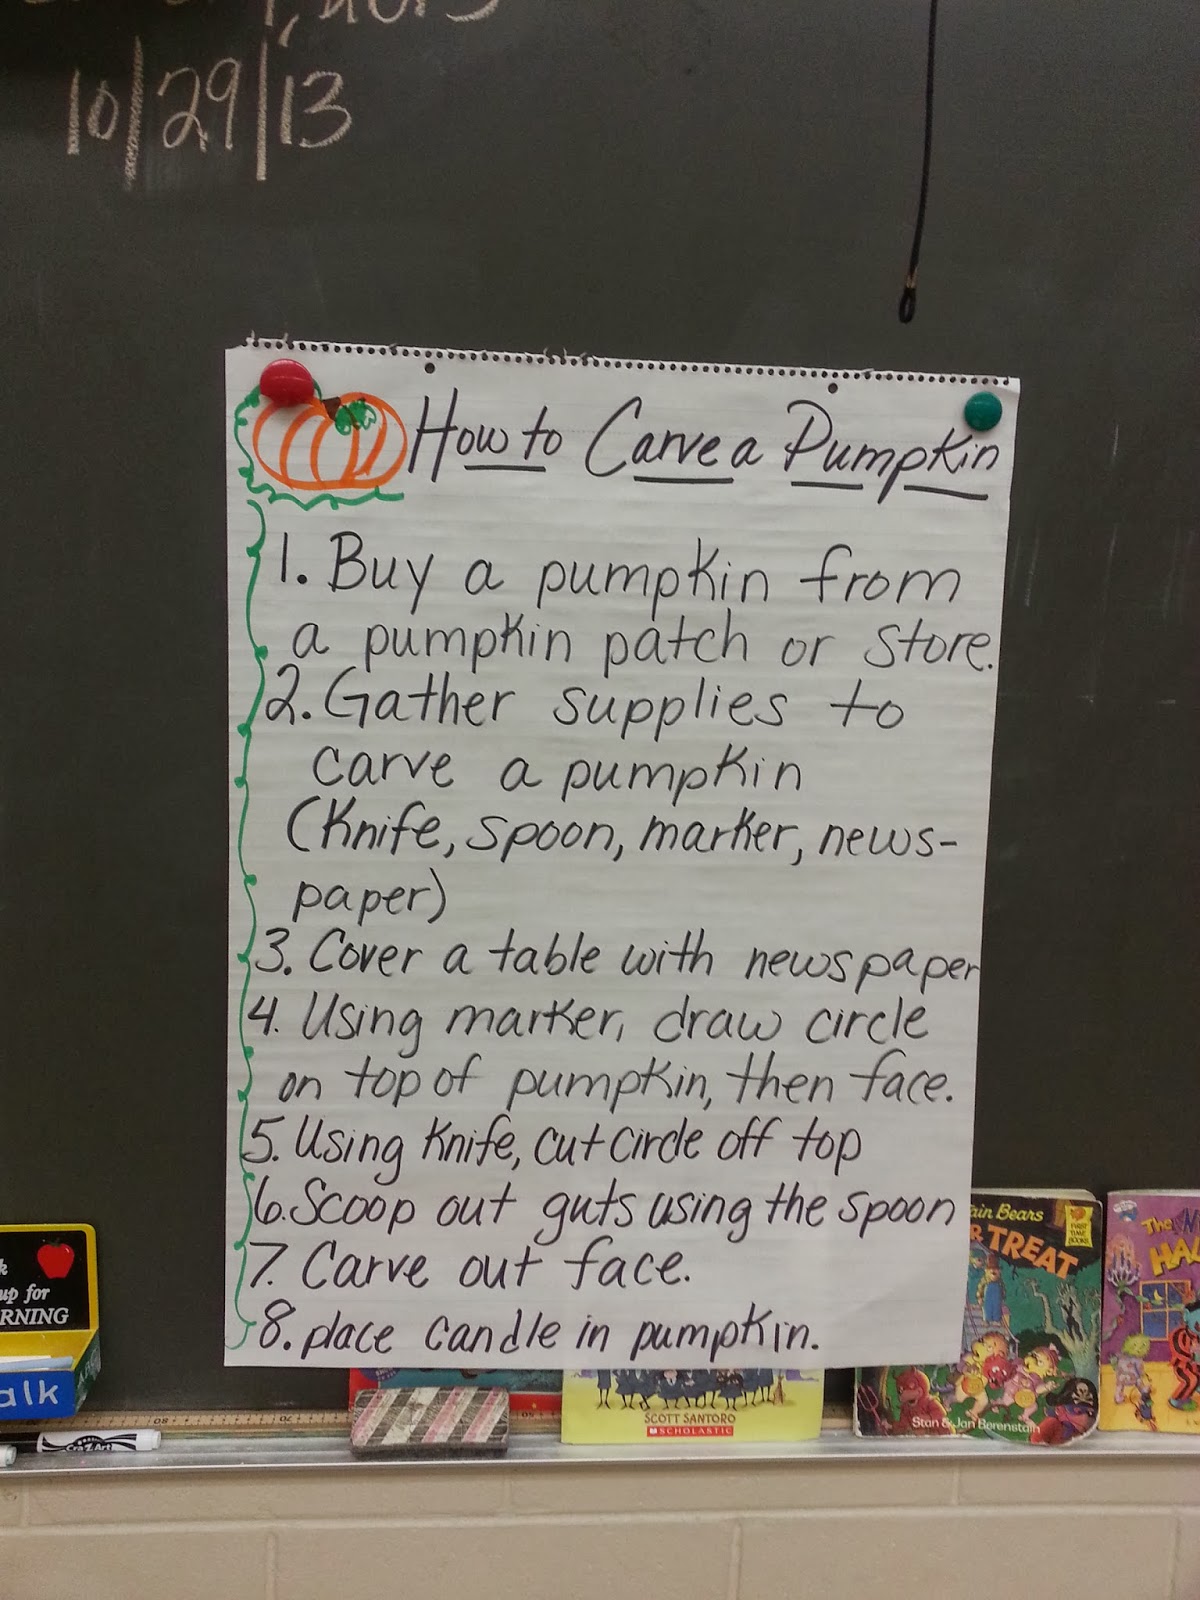 10/29/13
How to Carve a Pumpkin
1. Buy a pumpkin from
a pumpkin patch or store.
2. Gather supplies to
carve a pumpkin
(knife, spoon, marker, news-
paper)
3. Cover a table with newspaper
4. Using marker, draw circle
on top of pumpkin, then face.
5. Using knife, cut circle off top
6. Scoop out guts using the spoon
7. Carve out face.
8. place candle in pumpkin.
Bears
& TREAT
FIRST TIME BOOKS
Stan & Jan Berenstain
The
up for
alk
Cra-Z-Art
80
70
SCOTT SANTORO
SCHOLASTIC